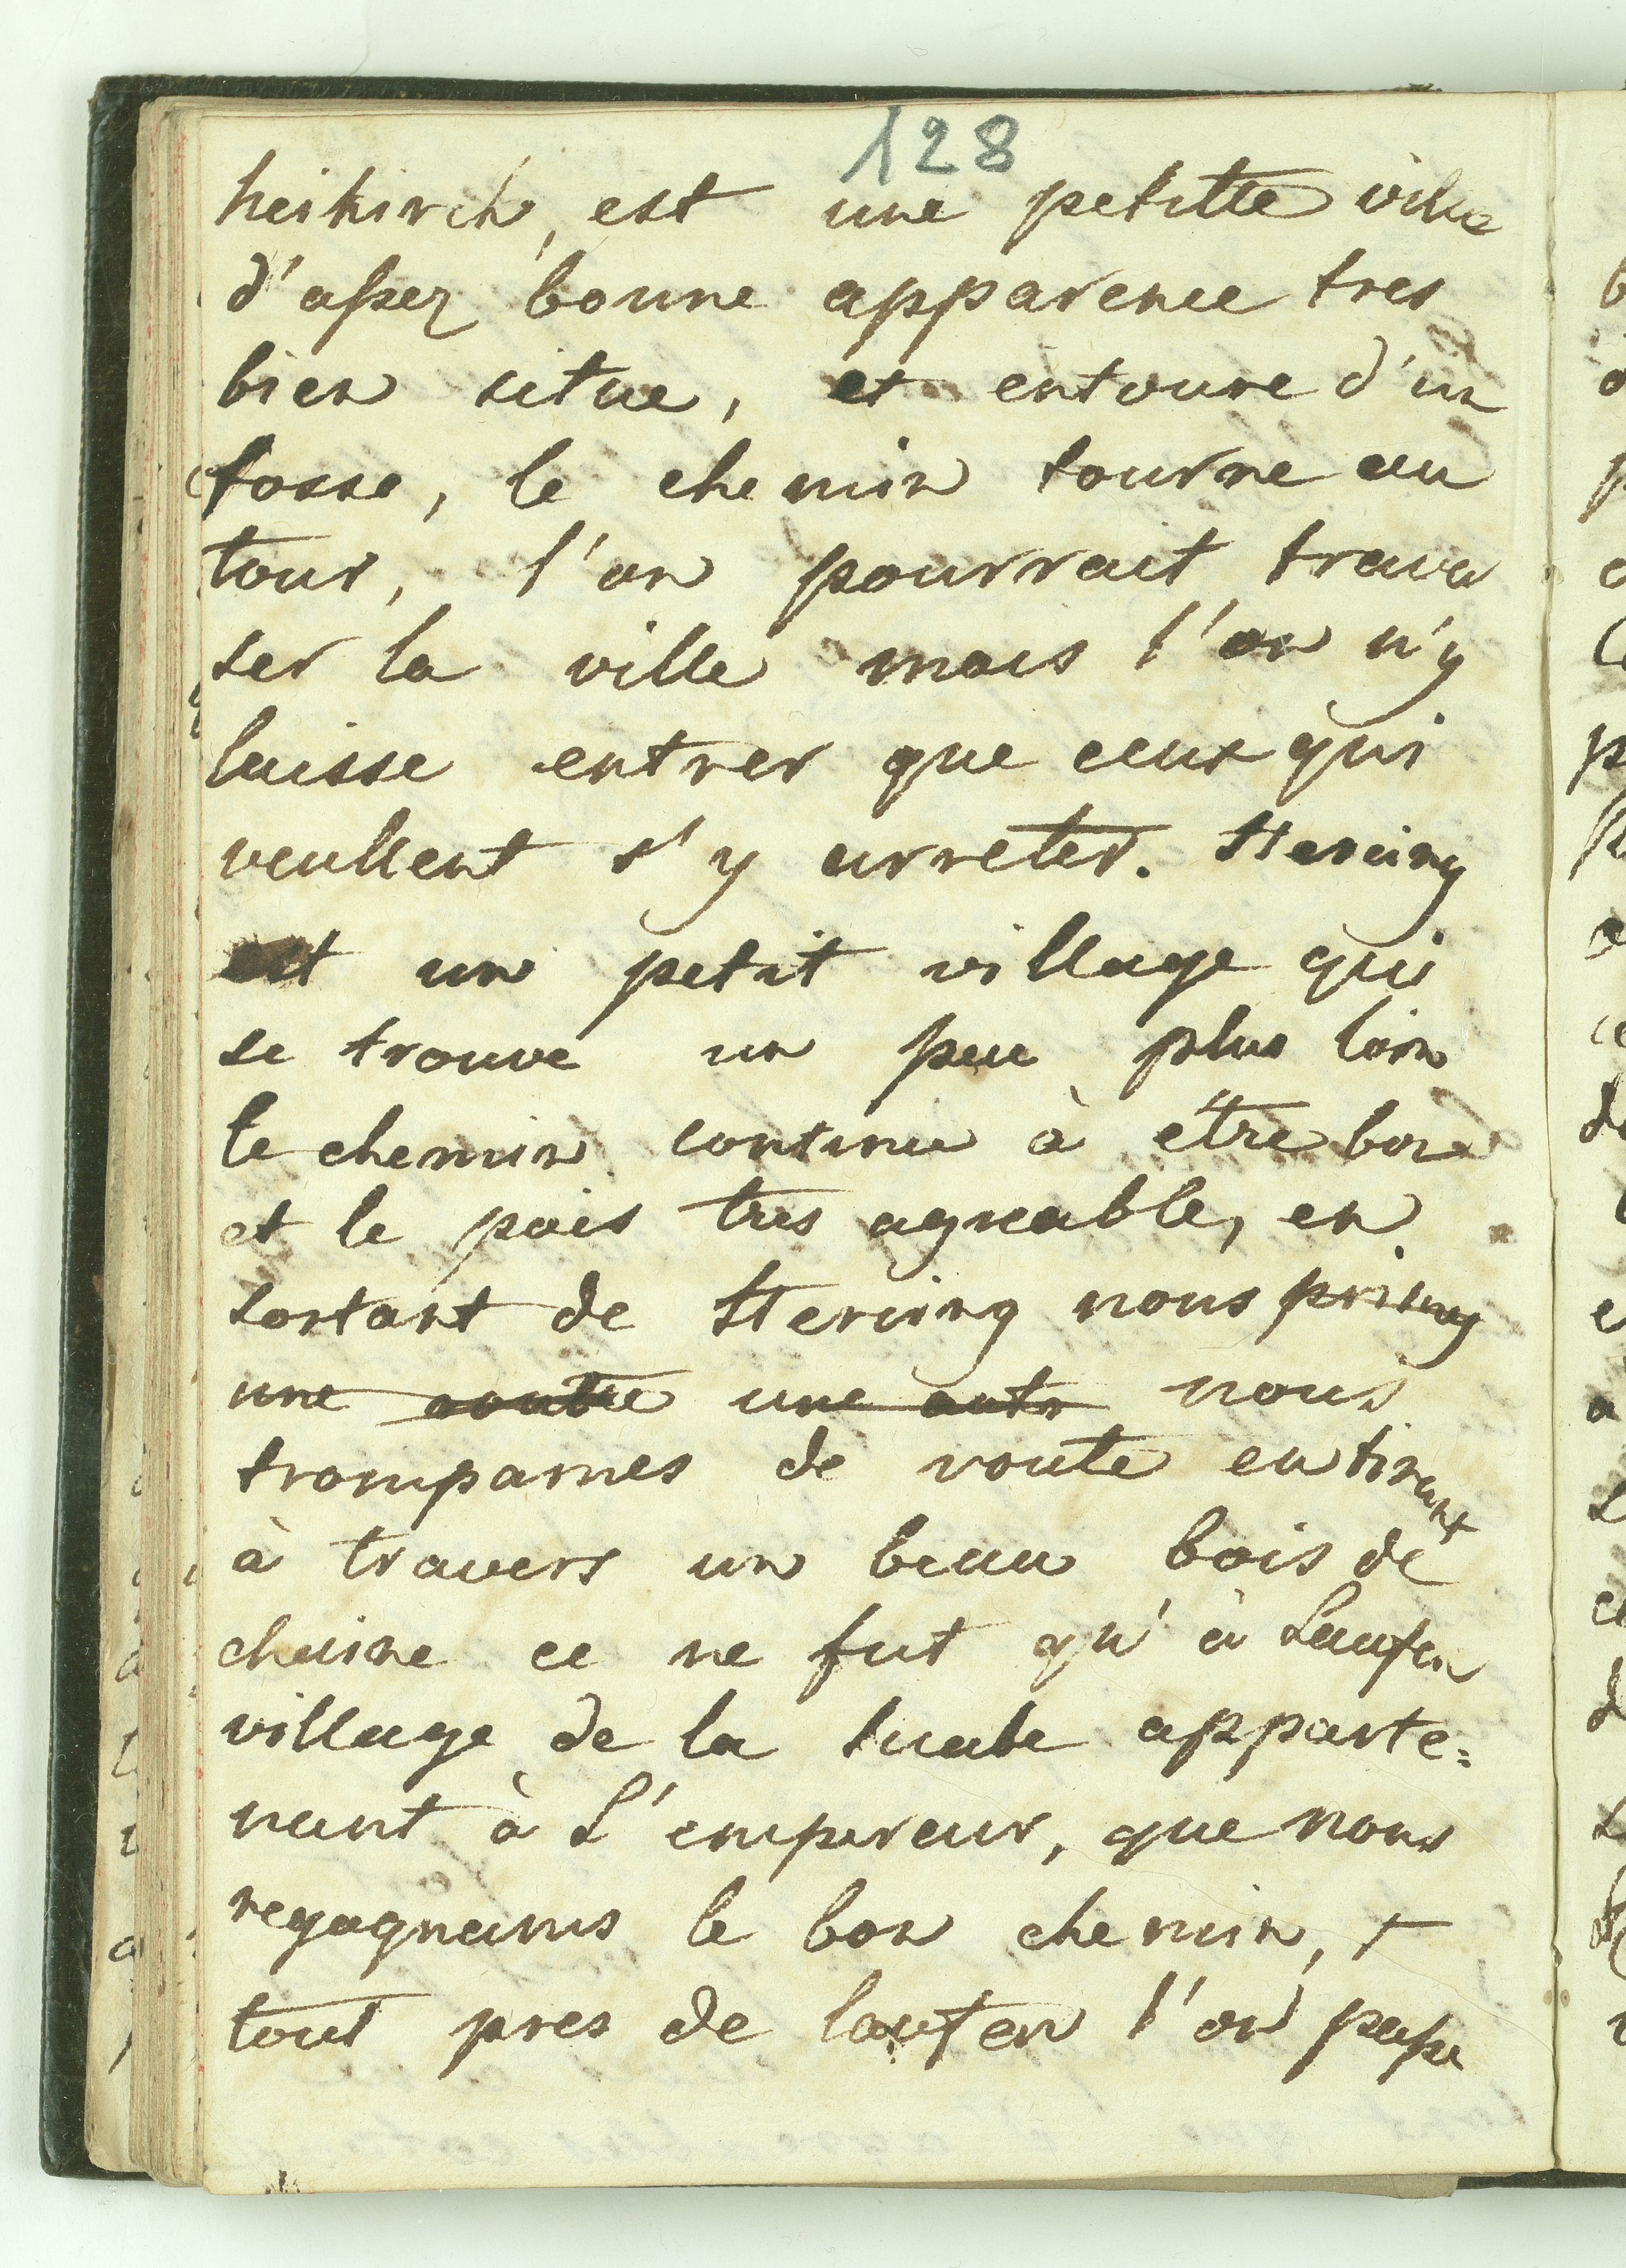 128
heikirch, est une petitte ville
d'assez bonne apparence tres
bien situe, et entoure d'un
fosse, le chemin tourne au
tour, l'on pourrait traver
ser la ville mais l'on n'y
laisse entrer que ceux qui
veullent s'y arreter. Stersing
est un petit village qui
se trouve un peu plus loin
le chemin continue à etre bon
et le pais tres agreable, en
sortant de Stersing nous primes
une route une autr nous
trompames de route en tirant
à travers un beau bois de
chaine ce ne fut qu'à Laufen
village de la suabe apparte=
nant à L'empereur, que nous
regagnames le bon chemin, +
tout pres de laufen l'on passe